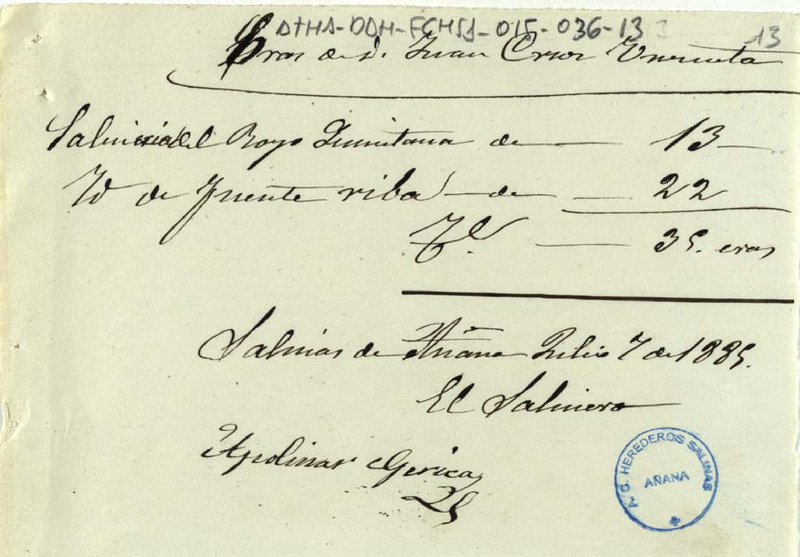 ATHA-DAH-FCHSA-015-036-13
13
Eras de D. Juan Cruz
Salinera del Royo Quintana de — 13
Yd de Fuente riba — de — 22
Tl. — 35. eras
Salinas de Añana Julio 7 de 1885.
El Salinero
Apolinar
A. G. HEREDEROS SALINAS
AÑANA